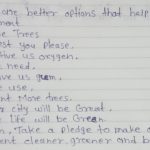 are better options that help
ment
e Trees
st you Please,
ive us oxygen,
need,
ive us gum,
use,
nt More trees.
r city will be Great,
Life will be Green.
Take a Pledge to make
ent cleaner, greener and b